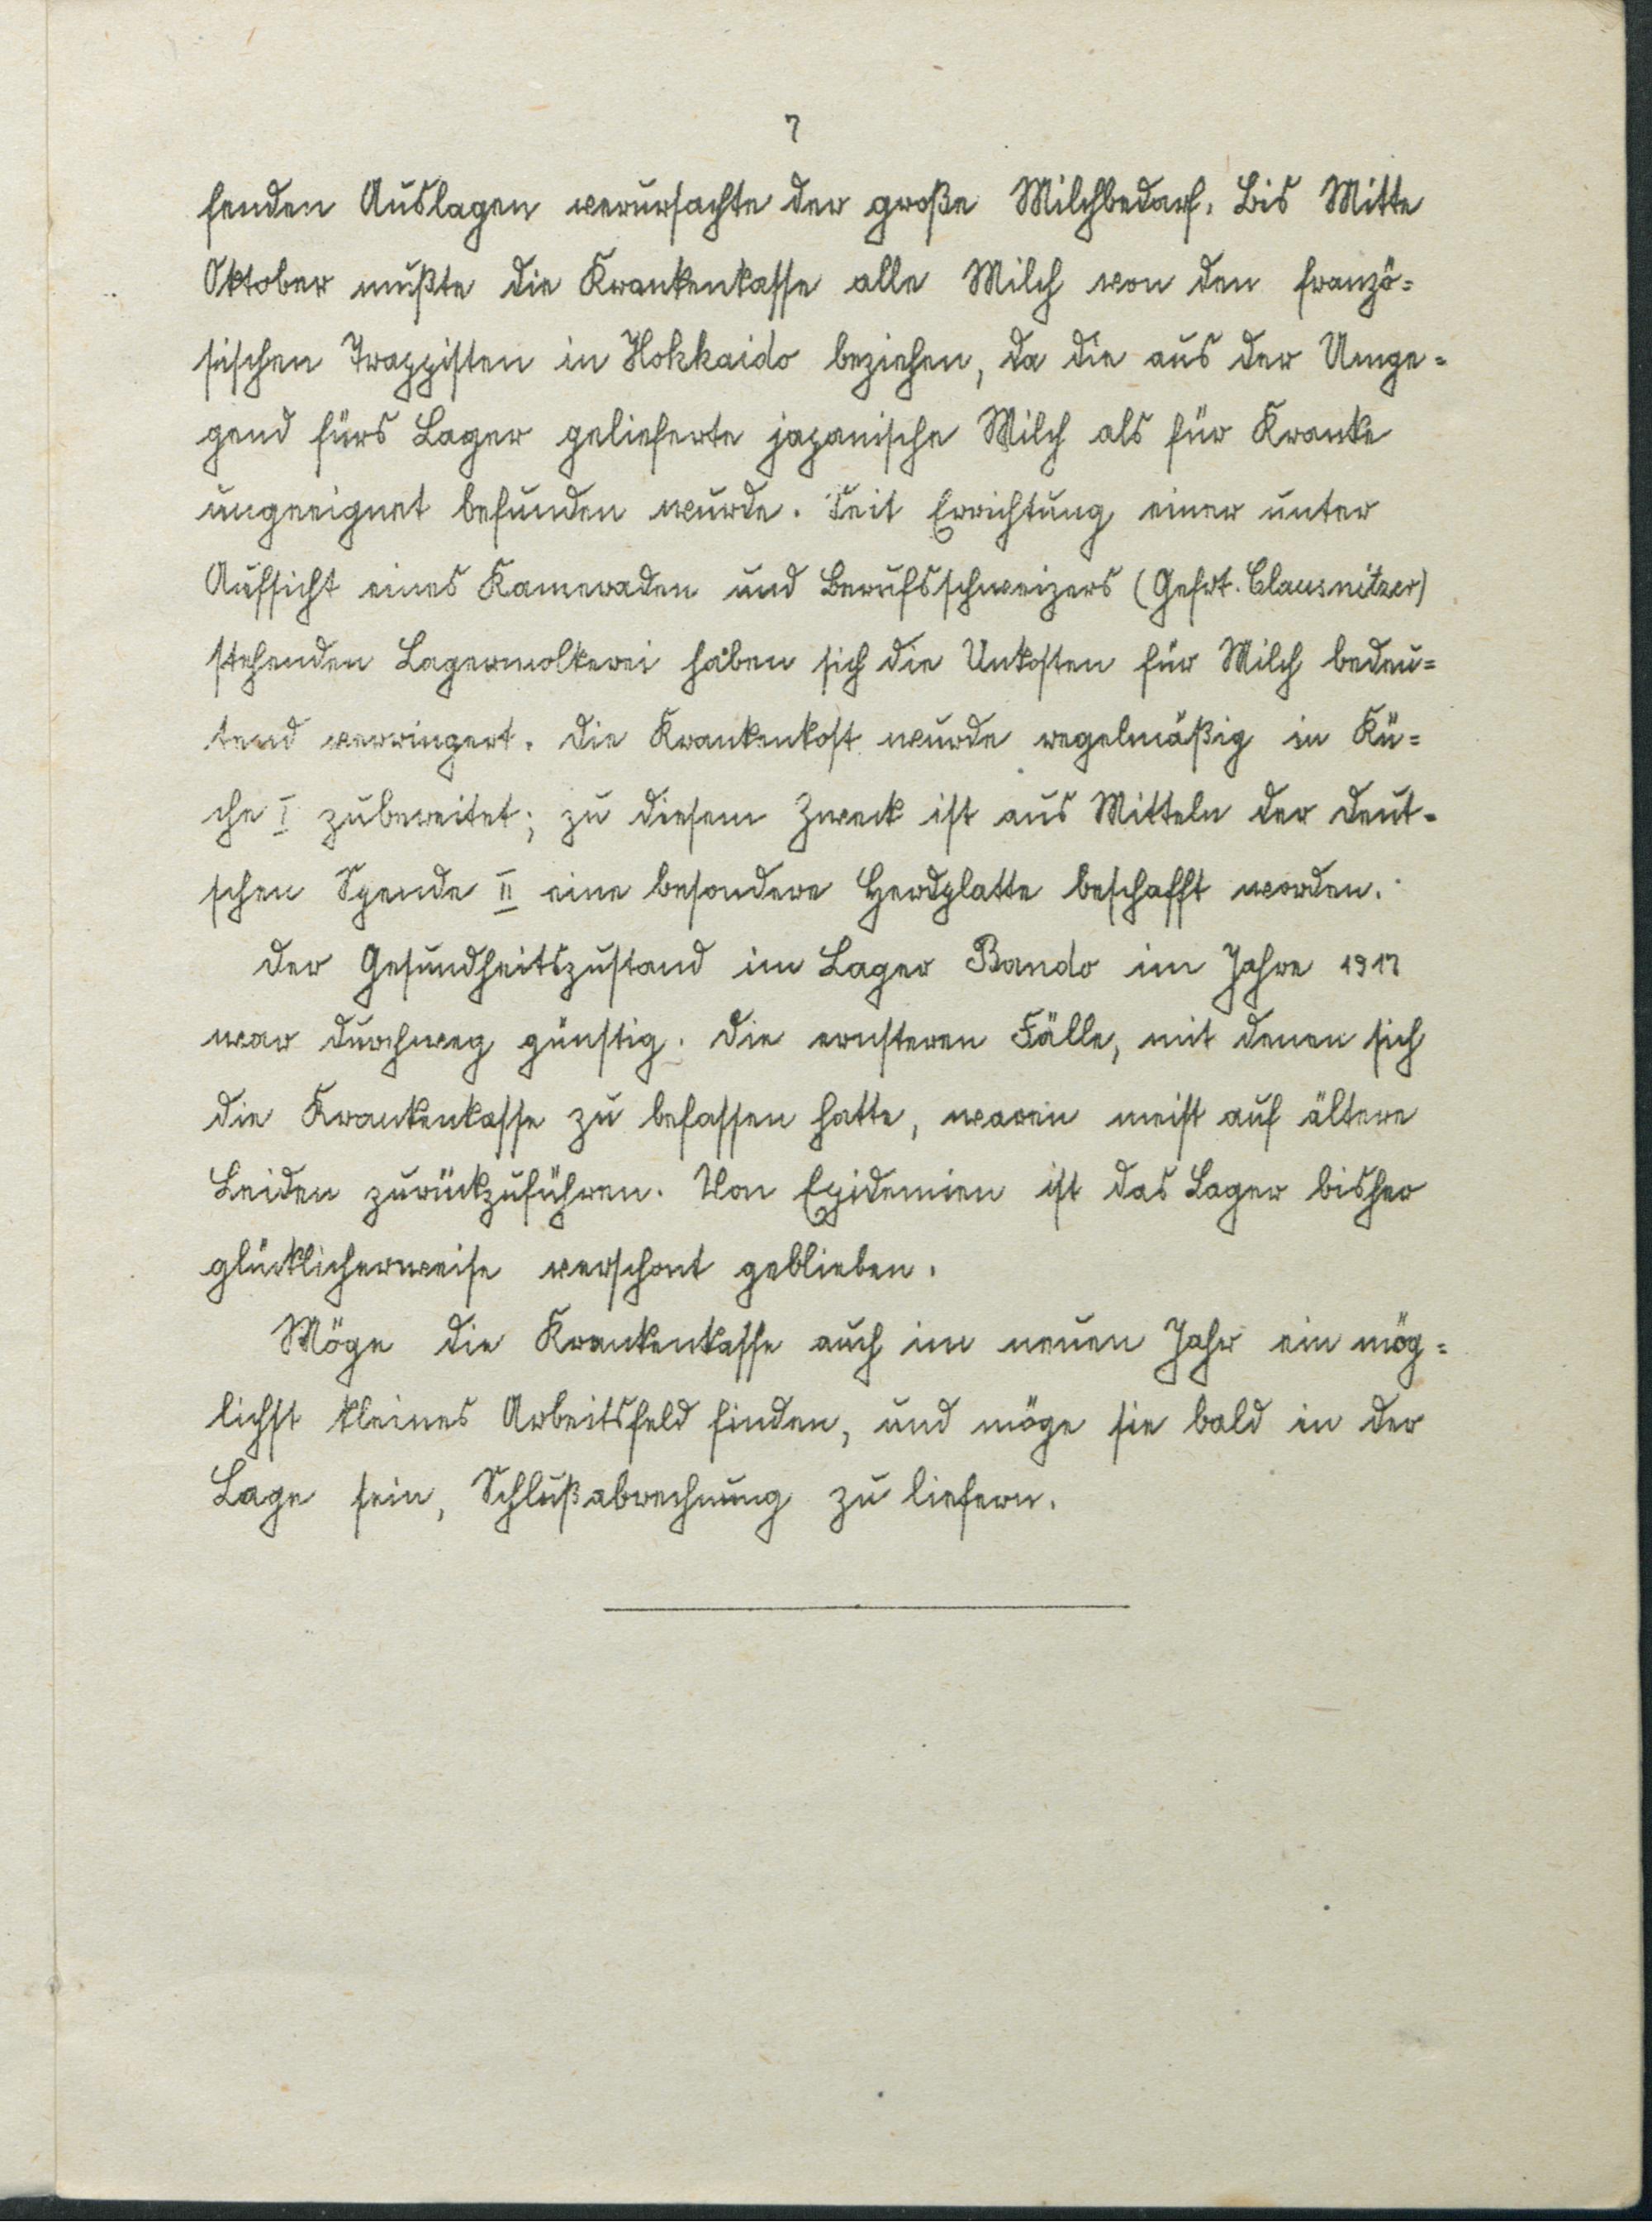 7
fenden Auslagen verursachte der große Milchbedarf. Bis Mitte
Oktober mußte die Krankenkasse alle Milch von den franzö=
sischen Trappisten in Hokkaido beziehen, da die aus der Umge=
gend fürs Lager gelieferte japanische Milch als für Kranke
ungeeignet befunden wurde. Seit Errichtung einer unter
Aufsicht eines Kameraden und Berufsschweizers (Gefrt. Clausnitzer)
stehenden Lagermolkerei haben sich die Unkosten für Milch bedeu=
tend verringert. Die Krankenkost wurde regelmäßig in Kü=
che I zubereitet; zu diesem Zweck ist aus Mitteln der Deut=
schen Spende II eine besondere Herdplatte beschafft worden.
Der Gesundheitszustand im Lager Bando im Jahre 1917
war durchweg günstig. Die ernsteren Fälle, mit denen sich
die Krankenkasse zu befassen hatte, waren meist auf ältere
Leiden zurückzuführen. Von Epidemien ist das Lager bisher
glücklicherweise verschont geblieben.
Möge die Krankenkasse auch im neuen Jahr ein mög=
lichst kleines Arbeitsfeld finden, und möge sie bald in der
Lage sein, Schlußabrechnung zu liefern.